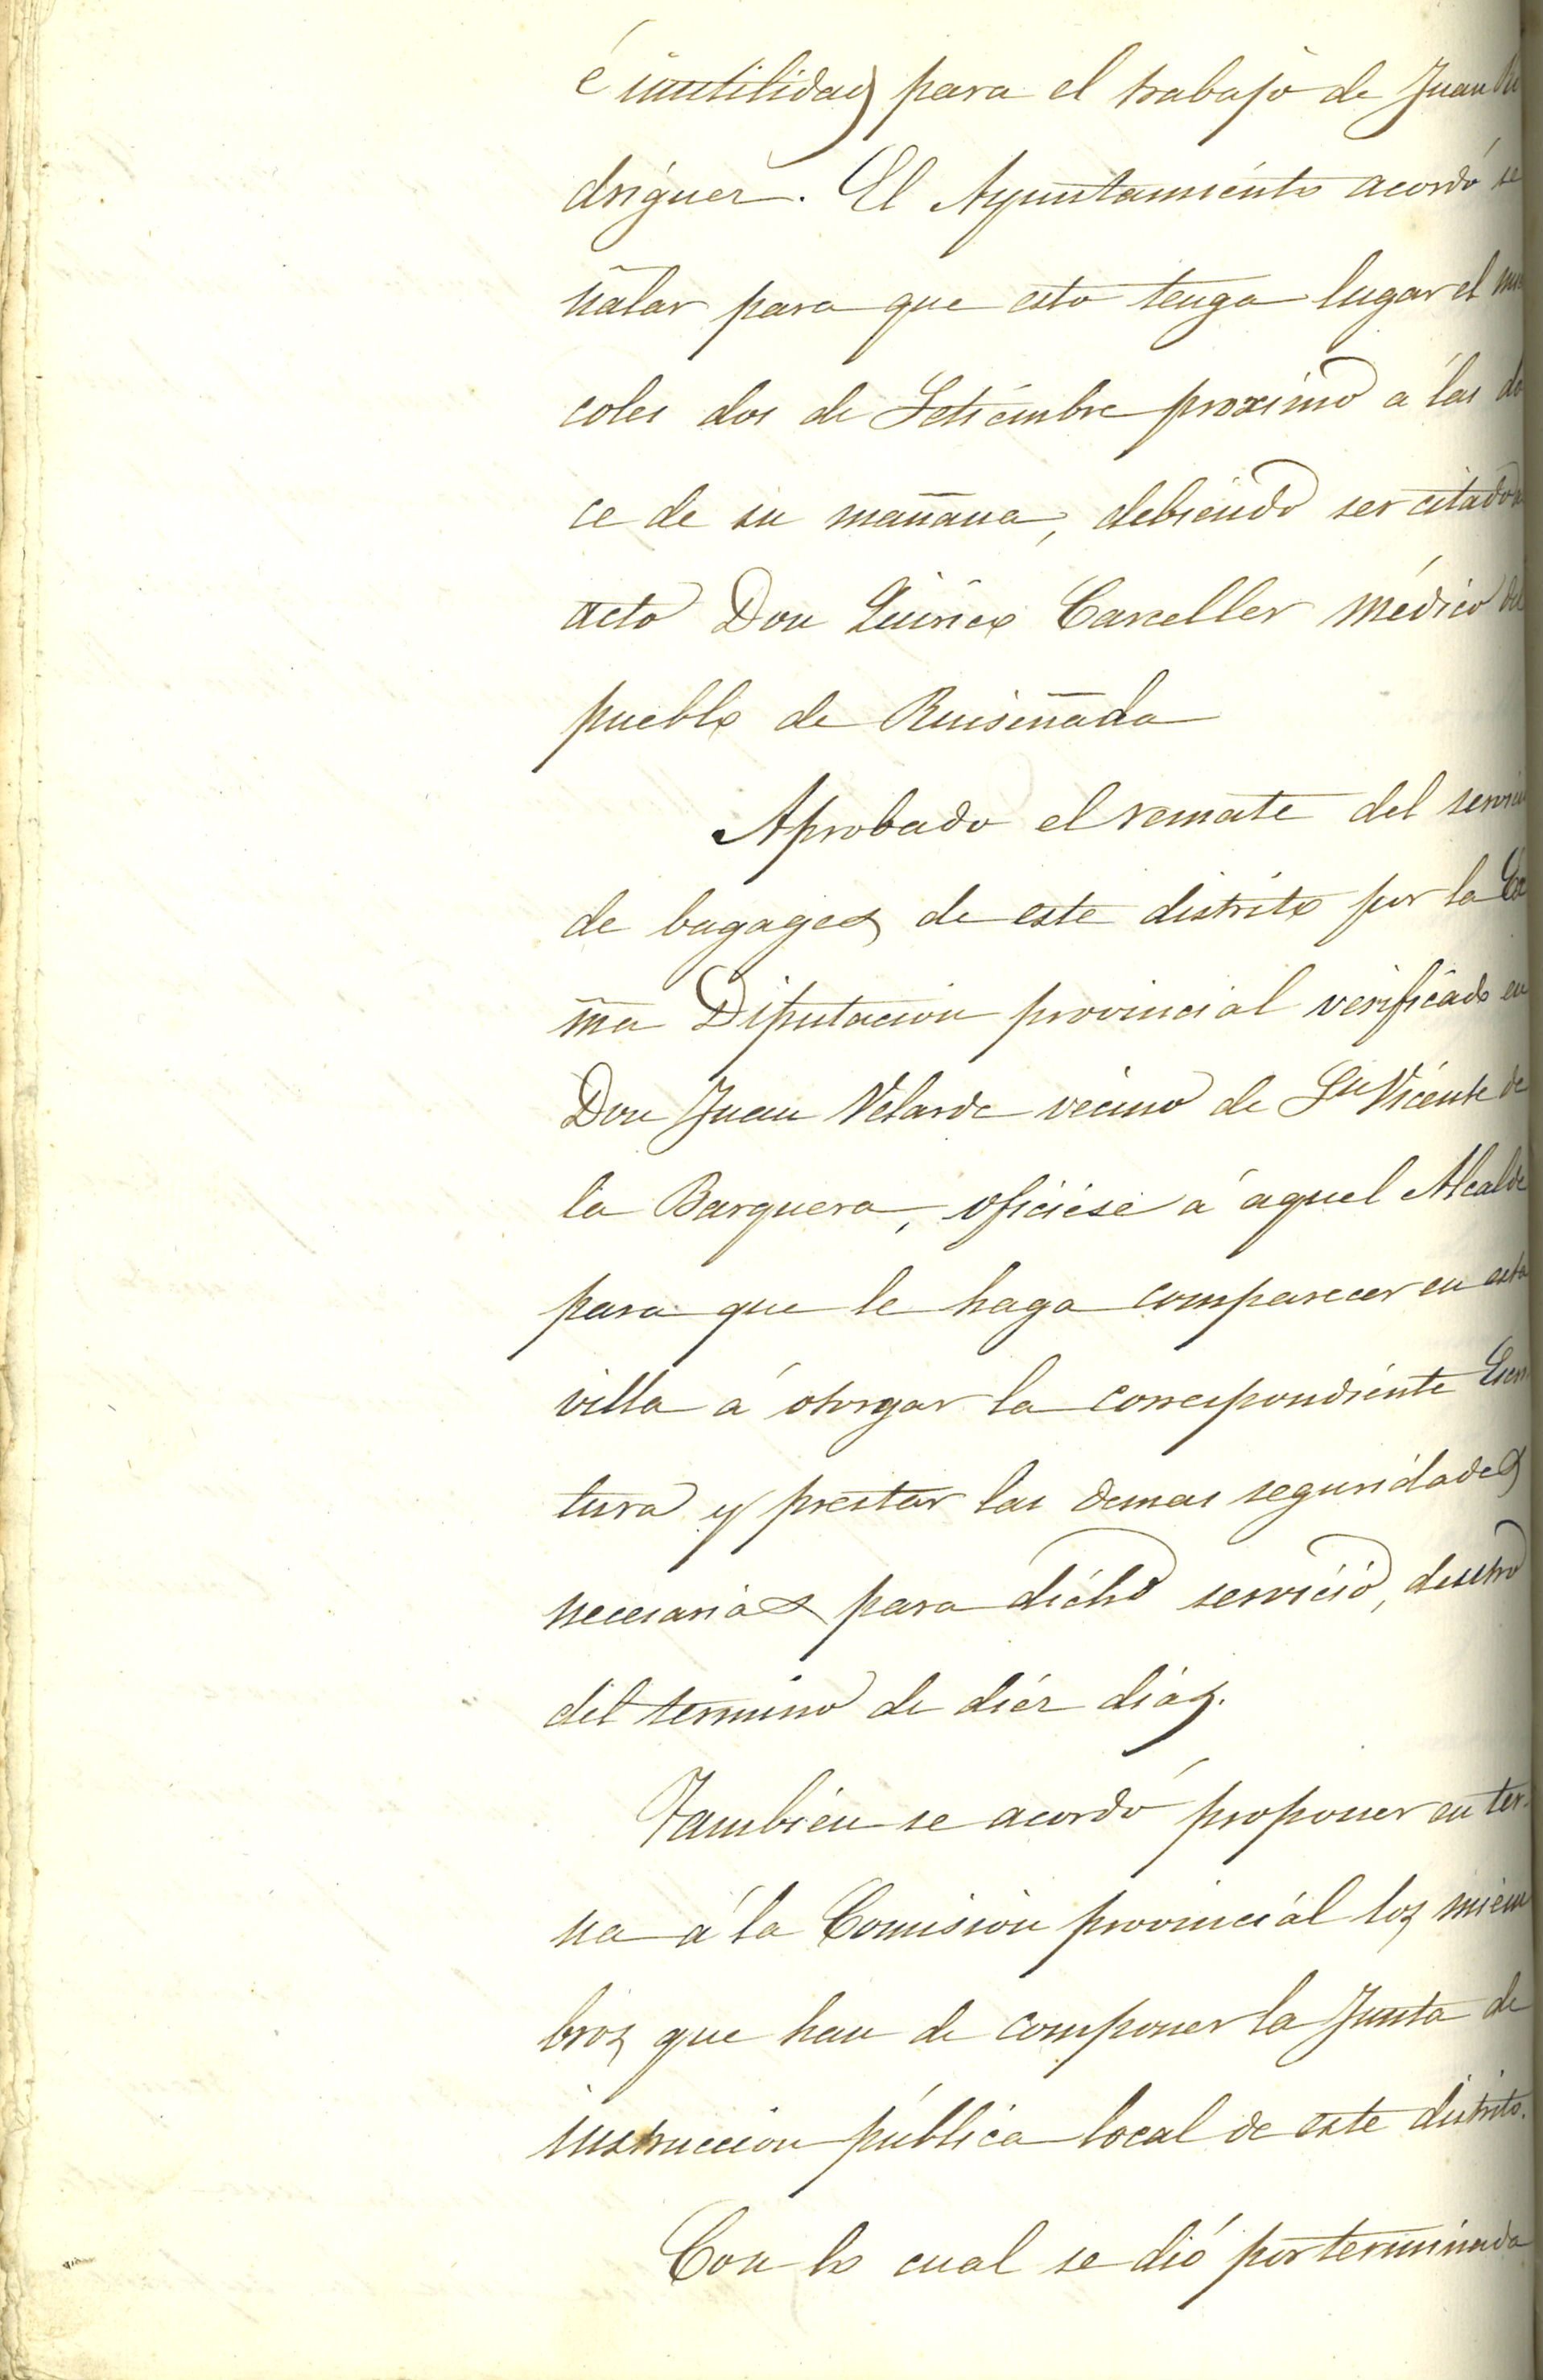 é inutilidad para el trabajo de Juan Ro
driguez. El Ayuntamiento acordó se
ñalar para que esto tenga lugar el mier
coles dos de Setiembre proximo a las do
ce de su mañana, debiendo ser citado al
acto Don Quirico Carceller médico del
pueblo de Ruiseñada
Aprobado el remate del servicio
de bagages de este distrito por la Ex
ma Diputacion provincial verificado en
Don Juan Velarde vecino de Sn Vicente de
la Barquera, oficiese á aquel Alcalde
para que le haga comparecer en esta
villa á otorgar la correspondiente Escri
tura y prestar las demas seguridades
necesarias para dicho servicio, dentro
del termino de diez dias.
Tambien se acordó proponer en ter-
na á la Comision provincial los miem
bros que han de componer la Junta de
instruccion pública local de este distrito.
Con lo cual se dió por terminada